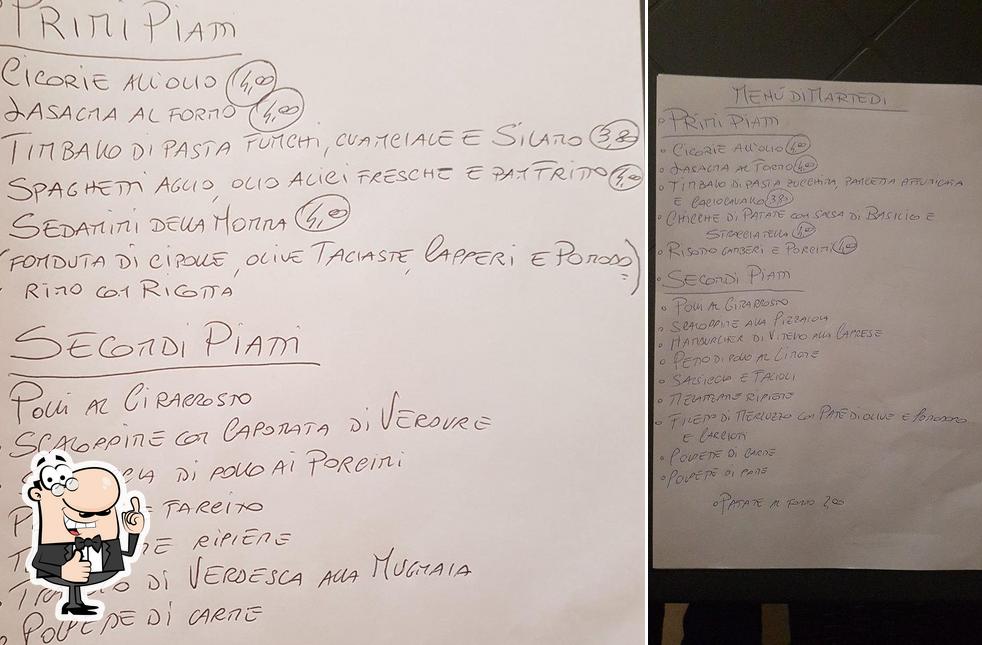 PRIMI PIATTI
CICORIE ALL'OLIO 4,00
LASAGNA AL FORNO 4,00
TIMBALLO DI PASTA FUNGHI, GUANCIALE E SILANO 3,80
SPAGHETTI AGLIO, OLIO ALICI FRESCHE E PAN FRITTO 4,00
SEDANINI DELLA NONNA 4,00
(FONDUTA DI CIPOLLE, OLIVE TAGIASTE, CAPPERI E POMODO
RINO CON RICOTTA
SECONDI PIATTI
POLLI AL GIRARROSTO
SCALOPPINE CON CAPONATA DI VERDURE
DI POLLO AI PORCINI
FARCITO
RIPIENE
DI VERDESCA ALLA MUGNAIA
POLPETTE DI CARNE
MENÙ DI MARTEDI
PRIMI PIATTI
CICORIE ALL'OLIO 4,00
LASAGNA AL FORNO 4,00
TIMBALLO DI PASTA ZUCCHINA, PANCETTA AFFUMICATA
E CACIOCAVALLO 3,80
CHICCHE DI PATATE CON SALSA DI BASILICO E
STRACCIATELLA 4,00
RISOTTO GAMBERI E PORCINI 4,00
SECONDI PIATTI
POLLI AL GIRARROSTO
SCALOPPINE ALLA PIZZAIOLA
HAMBURGHER DI VITELLO ALLA CAPRESE
PETTO DI POLLO AL LIMONE
SALSICCIA E FAGIOLI
MELANZANE RIPIENE
FILETTO DI MERLUZZO CON PATÈ DI OLIVE E POMODORO
E CARCIOFI
POLPETTE DI CARNE
POLPETTE DI PANE
PATATE AL FORNO 2,00